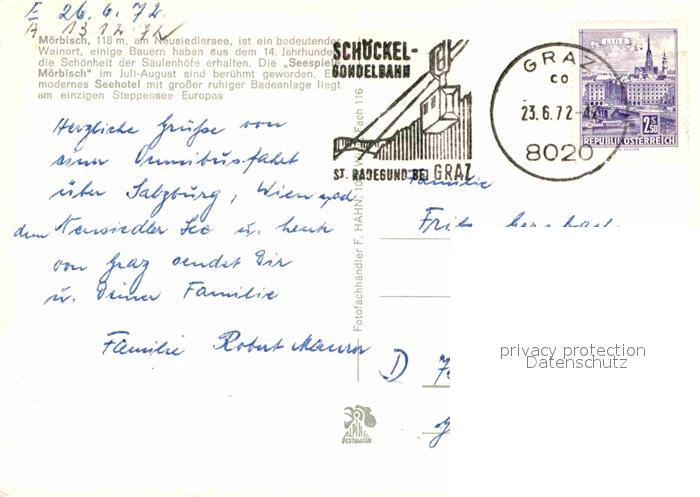 E 26.6.72.
A 13.12.72
Mörbisch, 118 m, am Neusiedlersee, ist ein bedeutender
Weinort, einige Bauern haben aus dem 14. Jahrhundert
die Schönheit der Säulenhöfe erhalten. Die „Seespiele
Mörbisch" im Juli-August sind berühmt geworden. Ein
modernes Seehotel mit großer ruhiger Badeanlage liegt
am einzigen Steppensee Europas
Herzliche Grüße von
einer Omnibusfahrt
über Salzburg, Wien und
dem Neusiedler See u. heute
von Graz sendet Dir
u. Deiner Familie
Familie Robert Maurer
Fotofachhändler F. HAHN, 10 Fach 116
ALPINE
POSTKARTEN
SCHÖCKEL-
GONDELBAHN
ST. RADEGUND BEI GRAZ
GRAZ
CO
23.6.72-12
8020
LINZ
2.50
REPUBLIK ÖSTERREICH
Familie
D
privacy protection
Datenschutz